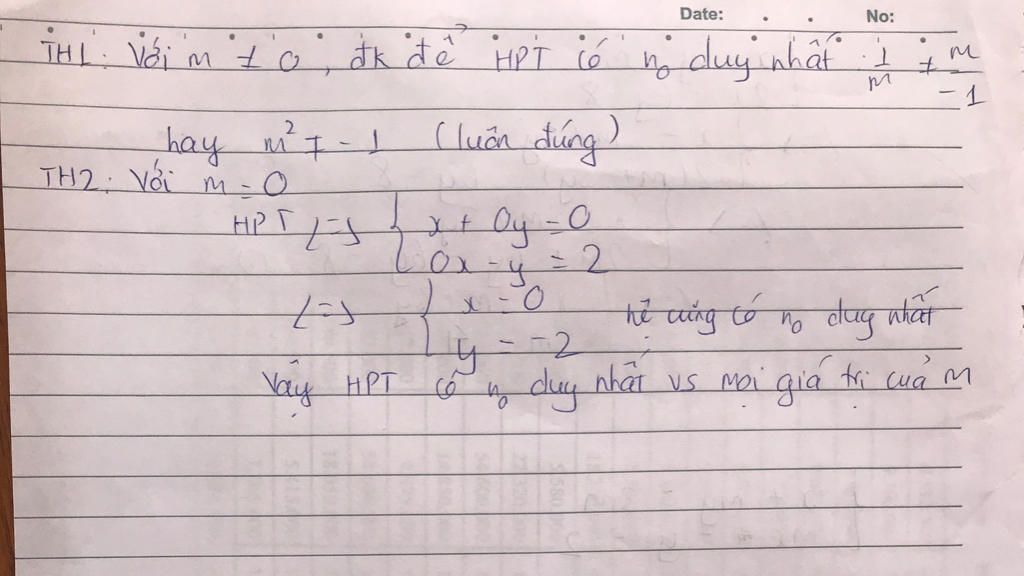 Date: . . No:
TH1: Với m ≠ 0, đk để HPT có no duy nhất 1/m ≠ m/-1
hay m² ≠ -1 (luôn đúng)
TH2: Với m = 0
HPT <=> { x + 0y = 0
0x - y = 2
<=> { x = 0 hệ cũng có no duy nhất
y = -2
Vậy HPT có no duy nhất vs mọi giá trị của m